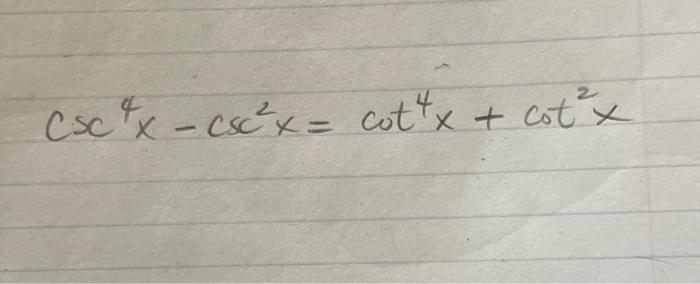 csc⁴x - csc²x = cot⁴x + cot²x